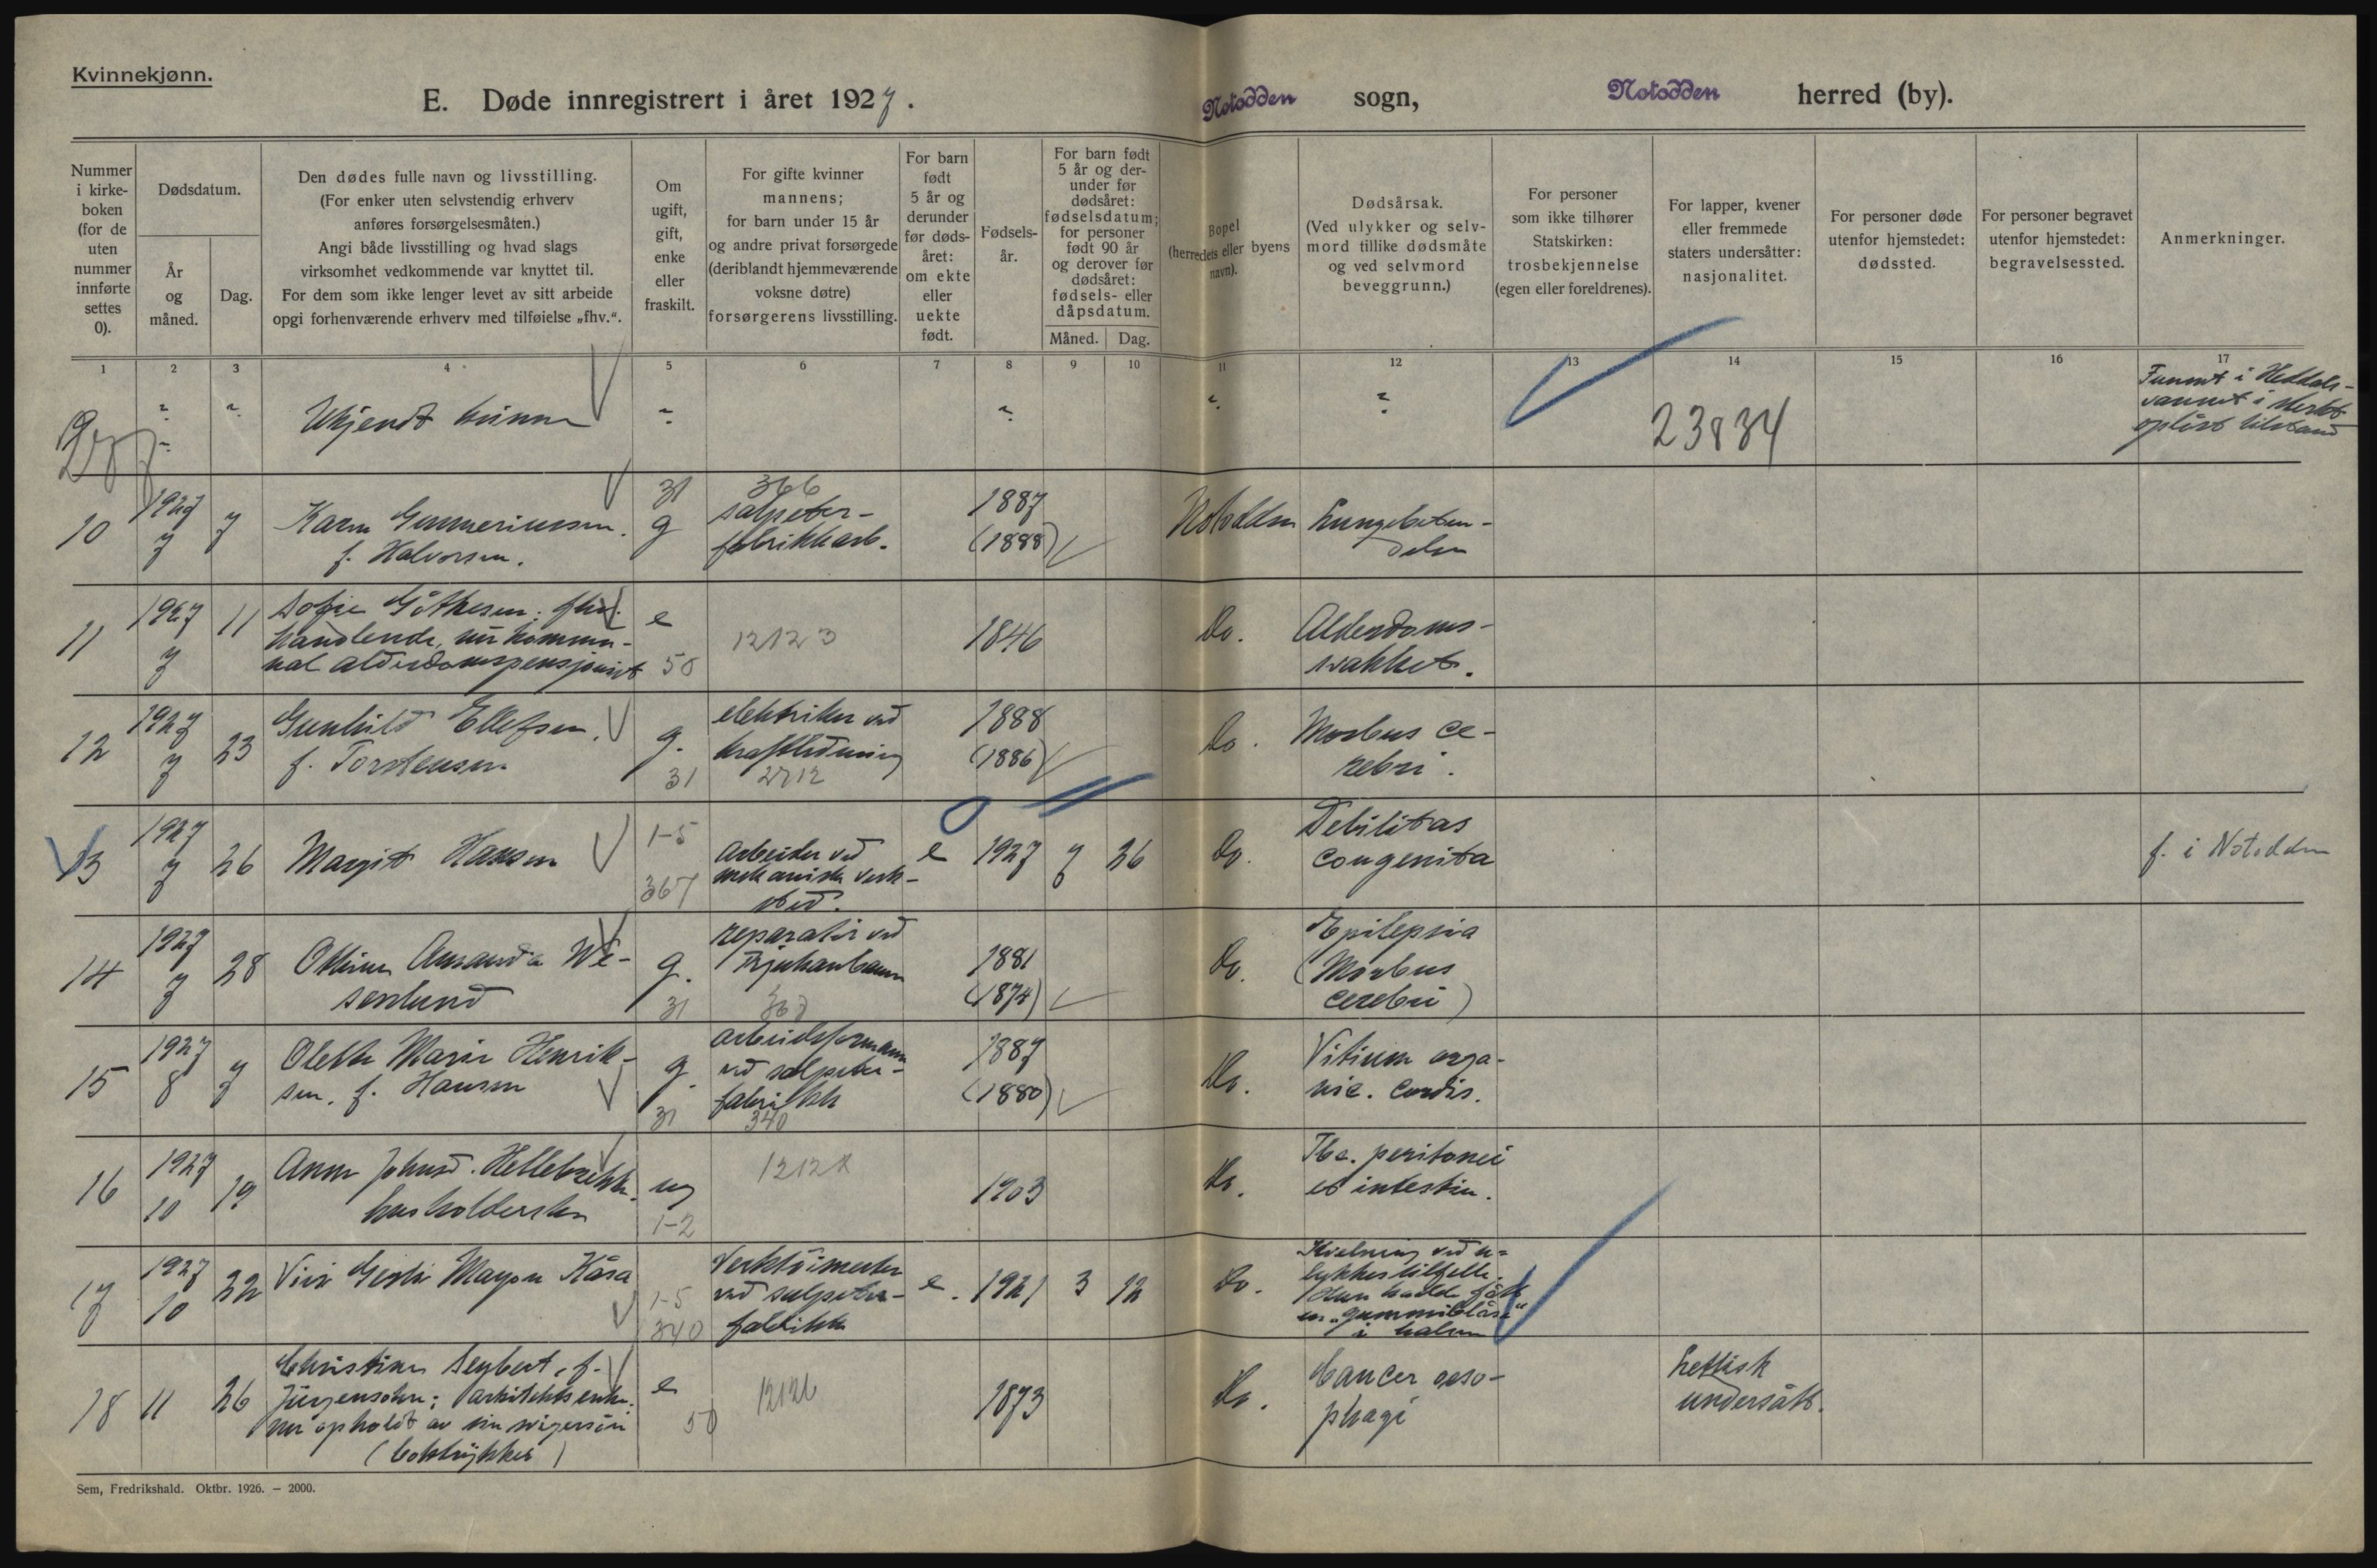 Kvinnekjønn.
E. Døde innregistrert i året 1927.
Notodden sogn, Notodden herred (by).
Nummer i kirke-boken (for de uten nummer innførte settes 0).
Dødsdatum.
År og måned.
Dag.
Den dødes fulle navn og livsstilling.
(For enker uten selvstendig erhverv anføres forsørgelsesmåten.)
Angi både livsstilling og hvad slags virksomhet vedkommende var knyttet til.
For dem som ikke lenger levet av sitt arbeide opgi forhenværende erhverv med tilføielse „fhv.“.
Om ugift, gift, enke eller fraskilt.
For gifte kvinner mannens; for barn under 15 år og andre privat forsørgede (deriblandt hjemmeværende voksne døtre) forsørgerens livsstilling.
For barn født 5 år og derunder før døds-året: om ekte eller uekte født.
Fødsels-år.
For barn født 5 år og der-under før dødsåret: fødselsdatum; for personer født 90 år og derover før dødsåret: fødsels- eller dåpsdatum.
Måned. Dag.
Bopel (herredets eller byens navn).
Dødsårsak.
(Ved ulykker og selv-mord tillike dødsmåte og ved selvmord beveggrunn.)
For personer som ikke tilhører Statskirken: trosbekjennelse (egen eller foreldrenes).
For lapper, kvener eller fremmede staters undersåtter: nasjonalitet.
For personer døde utenfor hjemstedet: dødssted.
For personer begravet utenfor hjemstedet: begravelsessted.
Anmerkninger.
1 2 3 4 5 6 7 8 9 10 11 12 13 14 15 16 17
? ? Ukjendt kvinne ? ? ? ? 23834
Funnet i Heddals-
vannet i sterkt
opløst tilstand
10 1927 7 7 Karen Gunneriussen.
f. Halvorsen.
31 g
366
salpeter-
fabrikkarb.
1887
(1888)
Notodden
Lungebeten-
delse
11 1927 7 11 Sofie Gåthesen; fhv.
handlende, nu kommu-
nal alderdomspensjonist
e 50 12123 1846 Do.
Alderdoms-
svakhet.
12 1927 7 23 Gunhild Ellefsen.
f. Torstensen
g. 31
elektriker ved
kraftledning
2712
1888
(1886)
Do.
Morbus ce-
rebri.
13 1927 7 26 Margit Hansen
1-5
367
Arbeider ved
mekanisk verk-
sted.
e 1927 7 26 Do.
Debilitas
congenita
f. i Notodden
14 1927 7 28 Amanda We-
senlund
g. 31
reparatør ved
Rjukanbanen
1881
(1874)
Do.
Epilepsia
(Morbus
cerebri)
15 1927 8 7 Olette Marie Henrik-
sen. f. Hansen
g. 31
arbeidsformann
ved salpeter-
fabrikk
340
1887
(1880)
Do.
Vitium orga-
nic. cordis.
16 1927 10 19 Anne Johnsd. Hellebrekke.
husholderske
ug
1-2
1903
Do.
Tbc. peritonei
et intestin.
17 1927 10 22 Mayon Kåsa
1-5
340
Verktöimester
ved salpeter-
fabrikk
e. 1921 3 12 Do.
Kvelning ved u-
lykkestilfelle.
Hun hadde fått
en „gummiblåse“
i halsen
18 11 26 Christine Seybert, f.
Jürgensohn; arkitektsenke.
nu opholdt av sin svigersön
(boktrykker)
e 50 1873 Do.
Cancer oeso-
phagi
Lettisk
undersått.
Sem, Fredrikshald. Oktbr. 1926. – 2000.